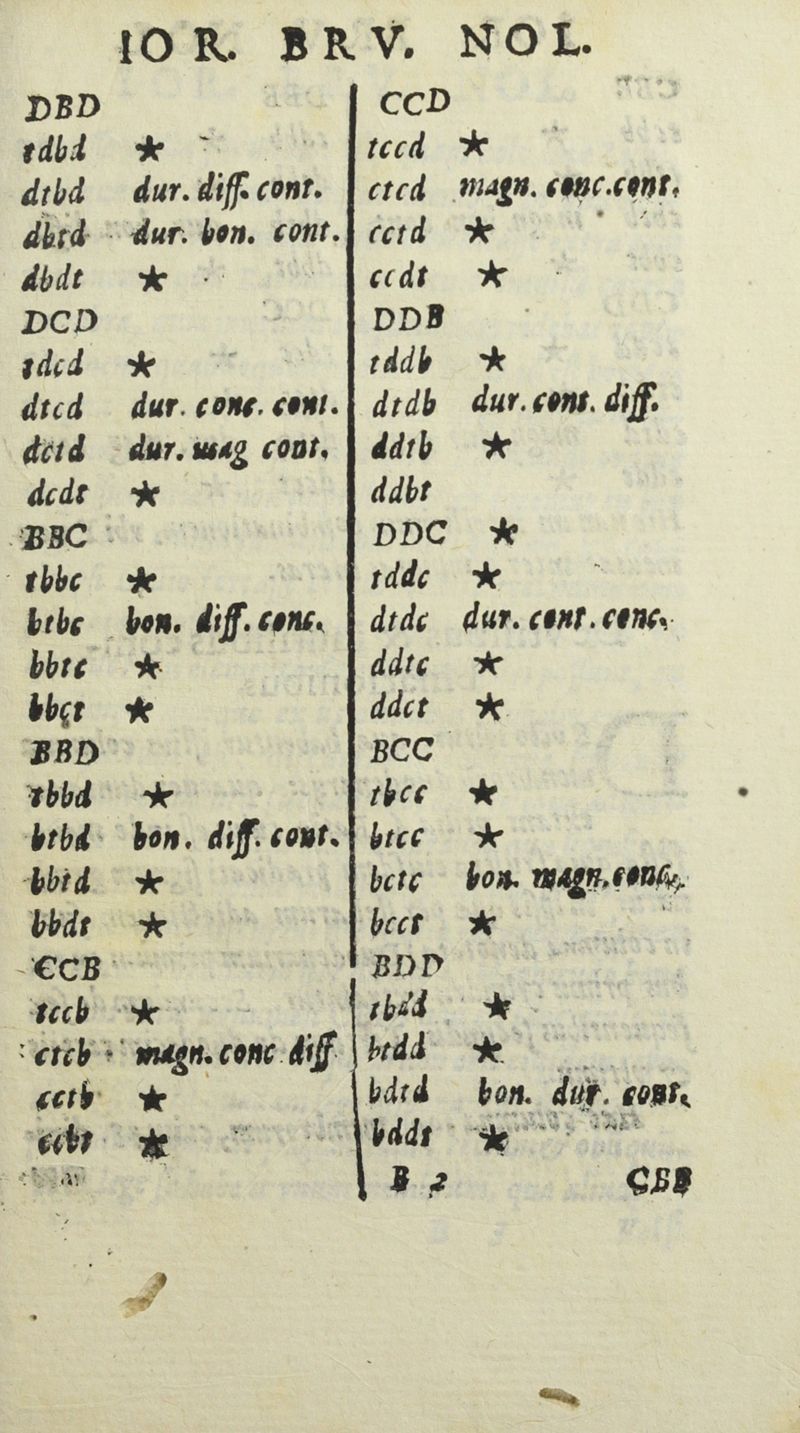 IOR. BRV. NOL.
DBD
tdbd ★
dtbd dur. diff. cont.
dbtd dur. bon. cont.
dbdt ★
DCD
tdcd ★
dtcd dur. conc. cont.
dctd dur. mag cont.
dcdt ★
BBC
tbbc ★
btbc bon. diff. conc.
bbtc ★
bbct ★
BBD
tbbd ★
btbd bon. diff. cont.
bbtd ★
bbdt ★
CCB
tccb ★
ctcb magn. conc diff
cctb ★
ccbt ★
CCD
tccd ★
ctcd magn. conc. cont.
cctd ★
ccdt ★
DDB
tddb ★
dtdb dur. cont. diff.
ddtb ★
ddbt
DDC ★
tddc ★
dtdc dur. cont. conc.
ddtc ★
ddct ★
BCC
tbcc ★
btcc ★
bctc bon. magn. conc.
bcct ★
BDD
tbdd ★
btdd ★
bdtd bon. dur. cont.
bddt ★
B 2 CBB